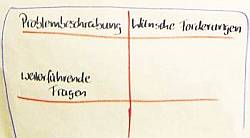 Problembeschrabung
Wünsche Forderungen
weiterführende
Fragen